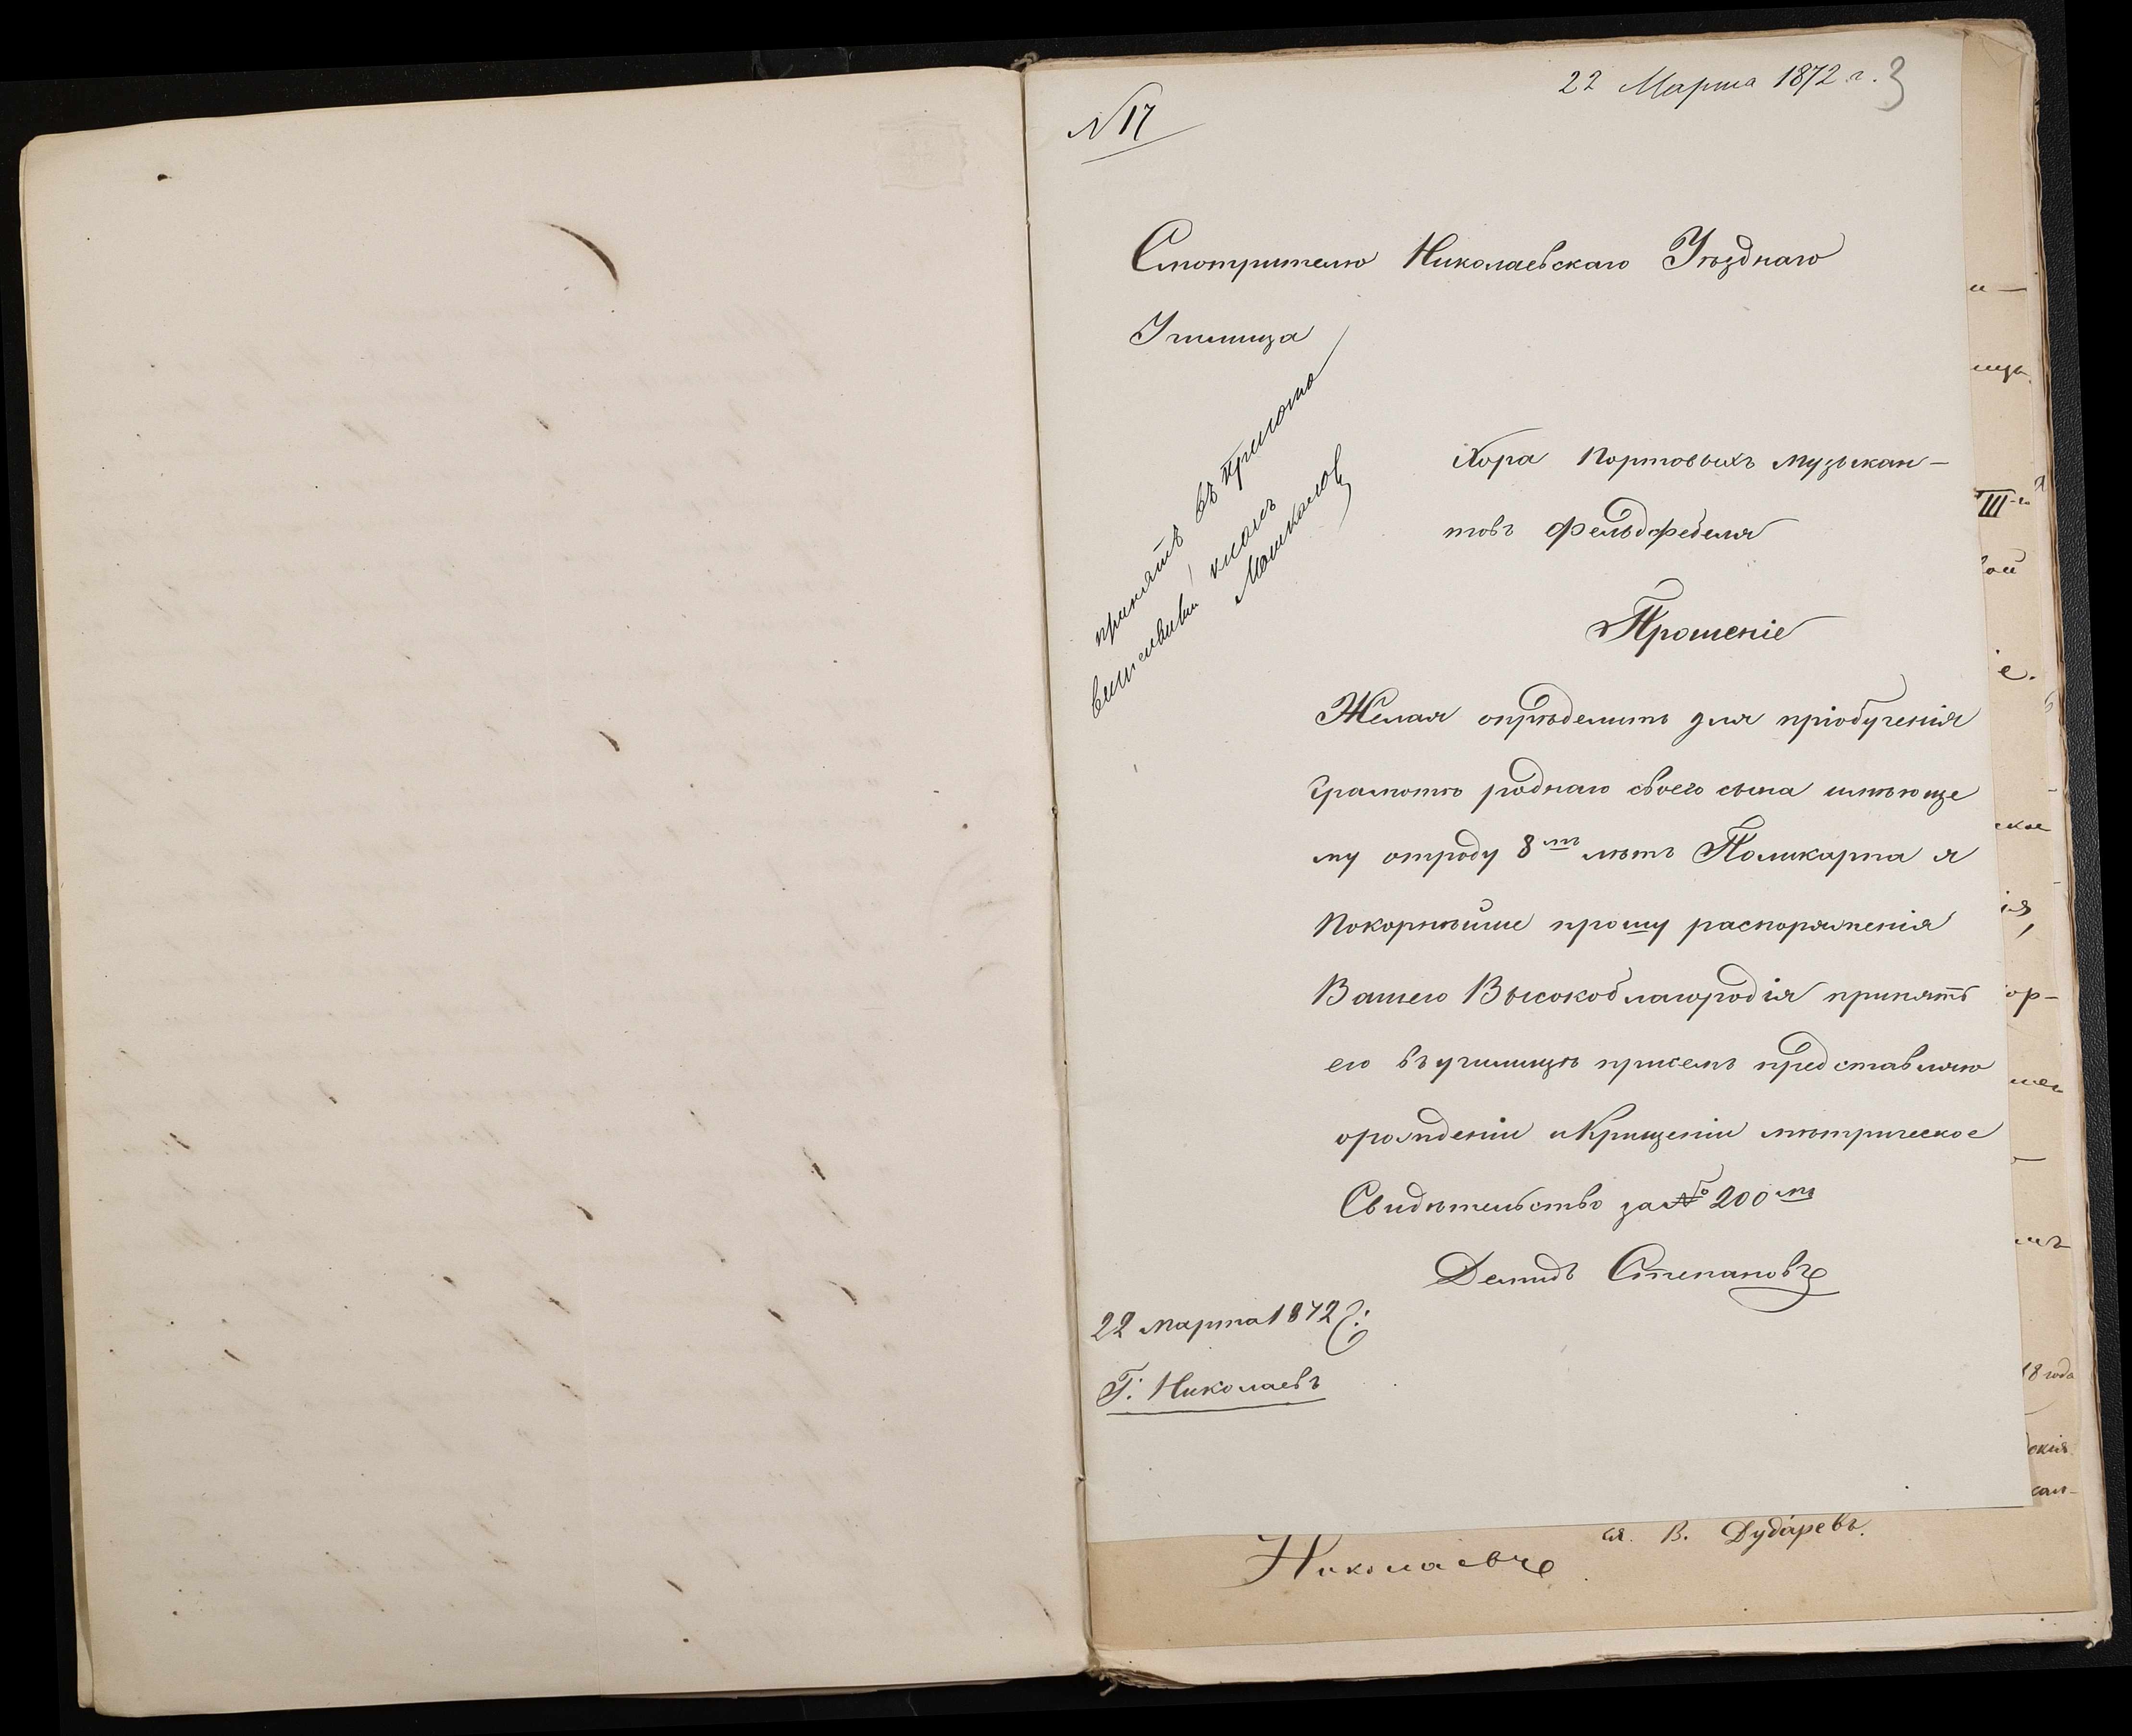 22 Марта 1872 г. 3
N 17
Смотрителю Николаевскаго Уѣзднаго
Училища
принять въ
классъ
Хора Портовыхъ музыкан-
товъ Фельдфебеля
Прошеніе
Желая опрѣделить для пріобученія
грамотѣ роднаго своего сына имѣюще
му отроду 8мъ лѣтъ Поликарпа я
Покорнѣйше прошу распоряженія
Вашего Высокоблагородія принять
его въ училищѣ присемъ представляю
орожденіи иКрищеніи мѣтрическое
Свидѣтельство за № 200мъ
Демидъ Степановъ
22 марта 1872 г:
Г. Николаевъ
и —
ища
III-го
вой
іе.
ское
ія,
ор-
мъ
18 года
скія
сан-
ся В. Дударевъ.
Николаевъ